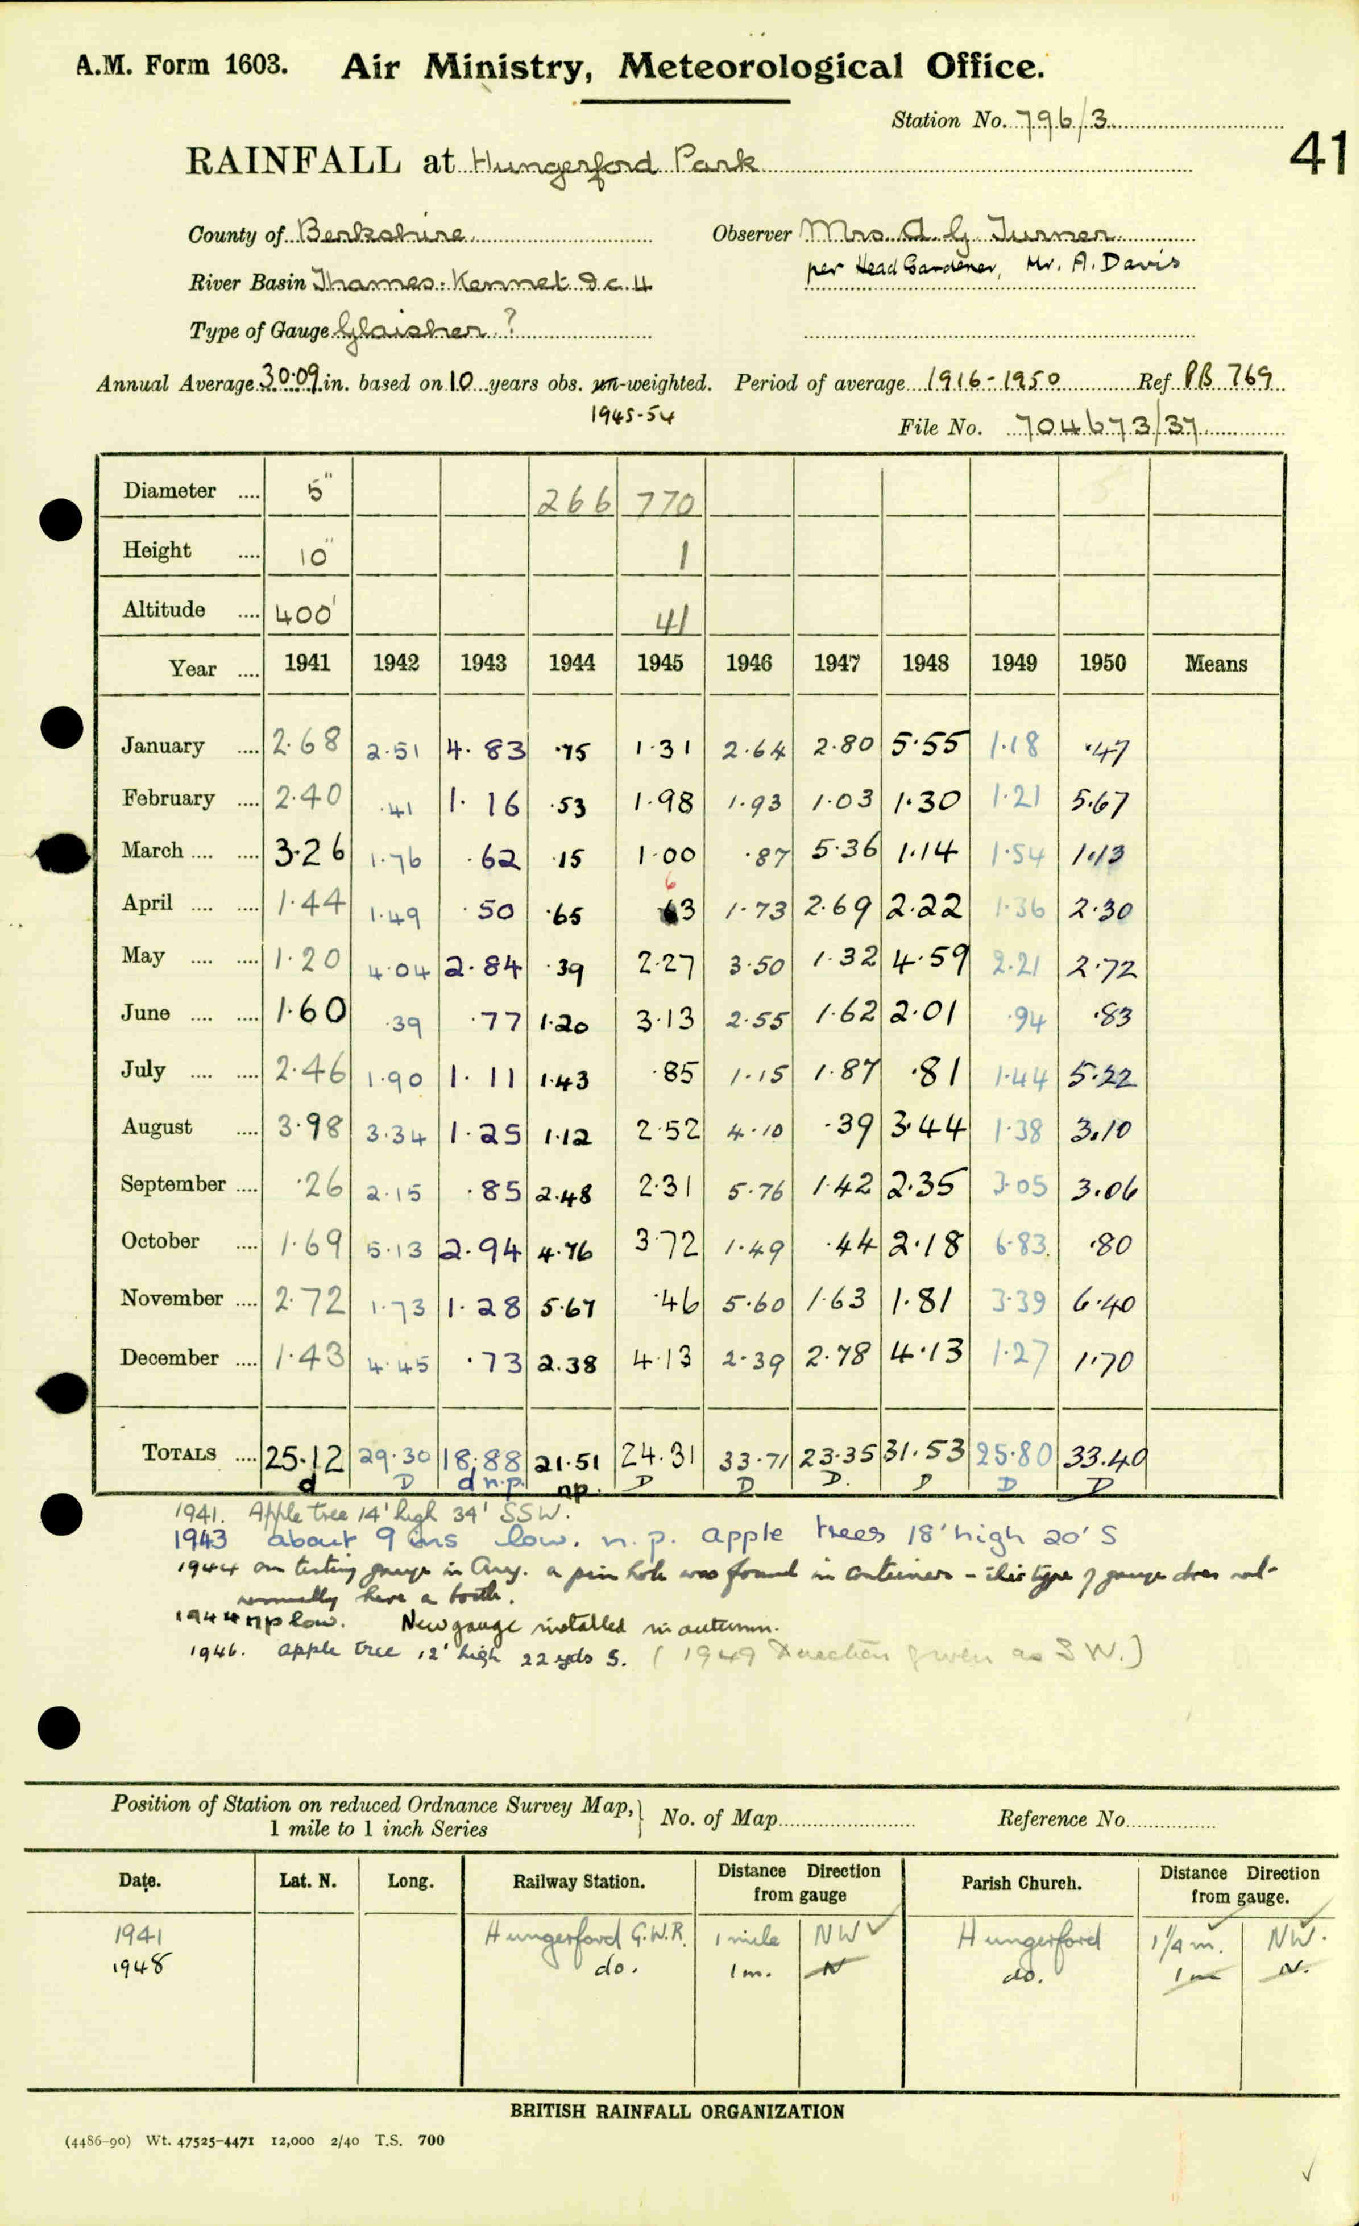 A.M. Form 1603. Air Ministry, Meteorological Office.
Station No. 796/3
41
RAINFALL at Hungerford Park
County of Berkshire Observer Mrs A. G. Turner
per Head Gardener, Mr. A. Davis
River Basin Thames. Kennet 9 c. 4
Type of Gauge Glaisher ?
Annual Average 30.09 in. based on 10 years obs. un-weighted. Period of average 1916-1950 Ref PB 769
1945-54
File No. 704673/37
Diameter .... 5" 266 770
Height .... 10" 1
Altitude .... 400' 41
Year .... 1941 1942 1943 1944 1945 1946 1947 1948 1949 1950 Means
January .... 2.68 2.51 4.83 .75 1.31 2.64 2.80 5.55 1.18 .47
February .... 2.40 .41 1.16 .53 1.98 1.93 1.03 1.30 1.21 5.67
March .... .... 3.26 1.76 .62 .15 1.00 .87 5.36 1.14 1.54 1.13
6
April .... .... 1.44 1.49 .50 .65 63 1.73 2.69 2.22 1.36 2.30
May .... .... 1.20 4.04 2.84 .39 2.27 3.50 1.32 4.59 2.21 2.72
June .... .... 1.60 .39 .77 1.20 3.13 2.55 1.62 2.01 .94 .83
July .... .... 2.46 1.90 1.11 1.43 .85 1.15 1.87 .81 1.44 5.22
August .... 3.98 3.34 1.25 1.12 2.52 4.10 .39 3.44 1.38 3.10
September .... .26 2.15 .85 2.48 2.31 5.76 1.42 2.35 3.05 3.06
October .... 1.69 5.13 2.94 4.76 3.72 1.49 .44 2.18 6.83 .80
November .... 2.72 1.73 1.28 5.67 .46 5.60 1.63 1.81 3.39 6.40
December .... 1.43 4.45 .73 2.38 4.13 2.39 2.78 4.13 1.27 1.70
TOTALS .... 25.12 29.30 18.88 21.51 24.31 33.71 23.35 31.53 25.80 33.40
d D d n.p. np. D D D. D D D
1941. Apple tree 14' high 34' SSW.
1943 about 9 ins low. n. p. apple trees 18' high 20' S
1944 on testing gauge in Aug. a pin hole was found in container - this type of gauge does not
normally have a bottle.
1944 np low. New gauge installed in autumn.
1946. apple tree 12' high 22 yds S. (1949 Direction given as SW.)
Position of Station on reduced Ordnance Survey Map,
1 mile to 1 inch Series
No. of Map Reference No.
Date. Lat. N. Long. Railway Station. Distance Direction from gauge Parish Church. Distance Direction from gauge.
1941 Hungerford G.W.R. 1 mile NW ✓ Hungerford 1¼ m. NW.
1948 do. 1 m. N do. 1 m N.
BRITISH RAINFALL ORGANIZATION
(4486-90) Wt. 47525-4471 12,000 2/40 T.S. 700